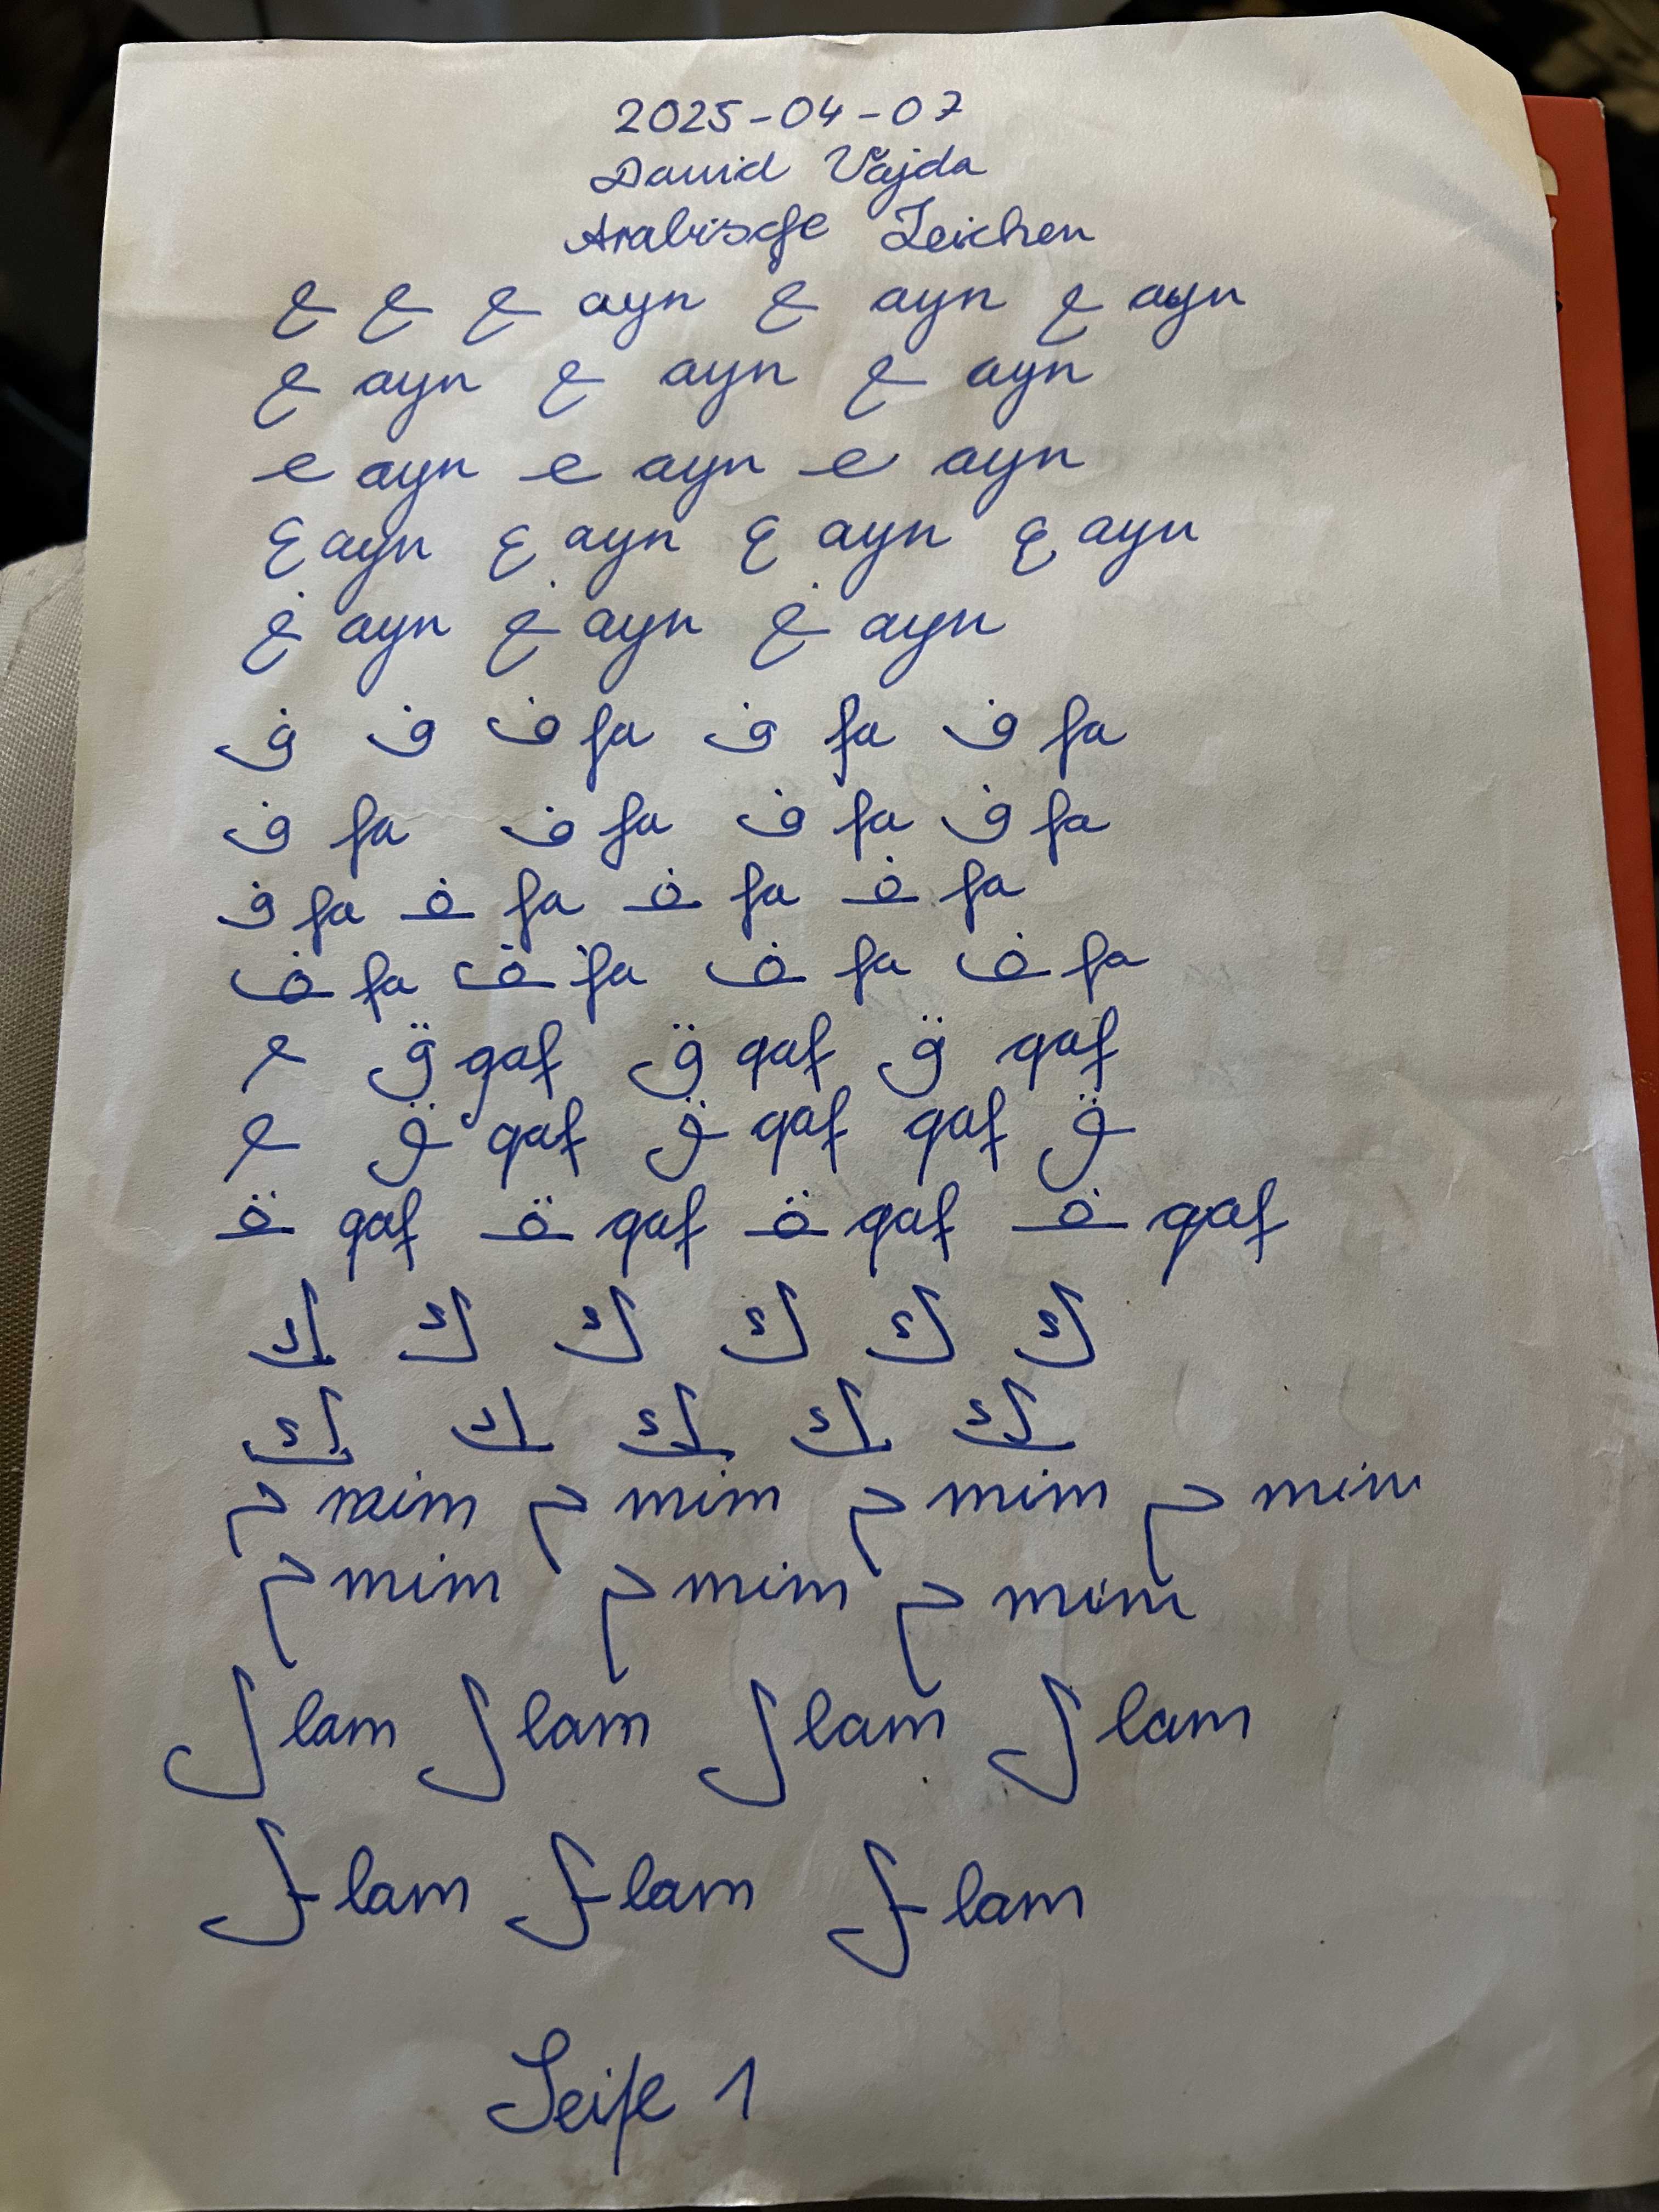 2025-04-07
David Vajda
Arabische Zeichen
ع ع ع ayn ع ayn ع ayn
ع ayn ع ayn ع ayn
ﻋ ayn ﻋ ayn ﻋ ayn
ع ayn ع ayn ع ayn ع ayn
غ ayn غ ayn غ ayn
ف ف ف fa ف fa ف fa
ف fa ف fa ف fa ف fa
ف fa ﻓ fa ﻓ fa ﻓ fa
ﻒ fa ﻒ fa ﻒ fa ﻒ fa
ق qaf ق qaf ق qaf
ﻖ qaf ﻖ qaf qaf ﻖ
ﻗ qaf ﻗ qaf ﻗ qaf ﻓ qaf
ك ك ك ك ك ك
ﻚ ﻚ ﻚ ﻚ ﻚ
م mim م mim م mim م mim
م mim م mim م mim
ل lam ل lam ل lam ل lam
ﻞ lam ﻞ lam ﻞ lam
Seite 1